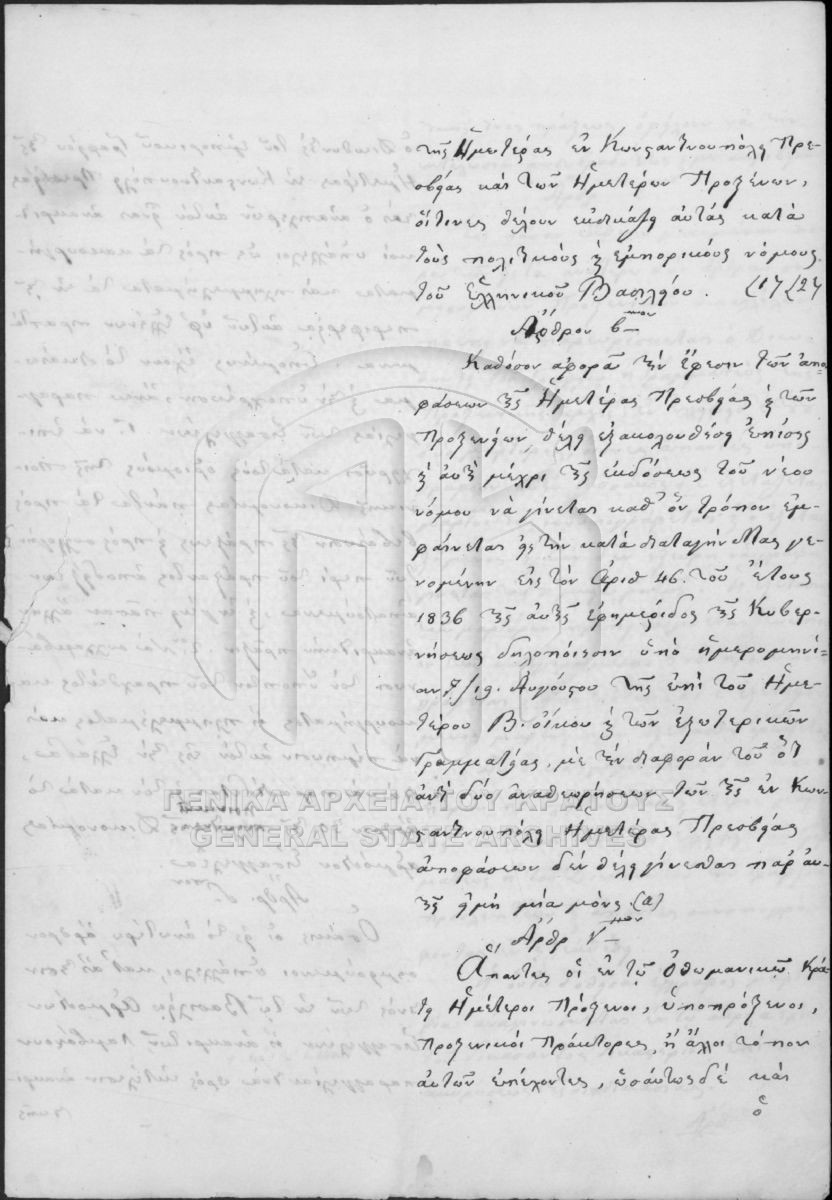 τῆς Ἡμετέρας ἐν Κωνσταντινουπόλει Πρε-
σβείας καὶ τῶν Ἡμετέρων Προξένων,
οἵτινες θέλουν ἐκδικάζῃ αὐτάς κατὰ
τοὺς πολιτικούς καὶ ἐμπορικούς νόμους
τοῦ Ἑλληνικοῦ Βασιλείου.
Ἄρθρον β-ον
Καθόσον ἀφορᾶ τὴν ἔφεσιν τῶν ἀπο-
φάσεων τῆς Ἡμετέρας Πρεσβείας καὶ τῶν
Προξενείων, θέλει ἐξακολουθήσῃ ἐπίσης
καὶ αὐτὴ μέχρι τῆς ἐκδόσεως τοῦ νέου
νόμου νὰ γίνεται καθ' ὃν τρόπον ἐμ-
φαίνεται εἰς τὴν κατὰ διαταγὴν Μας γε-
νομένην εἰς τὸν Ἀριθ 46. τοῦ ἔτους
1836 τῆς αὐτῆς Ἐφημερίδος τῆς Κυβερ-
νήσεως δηλοποίησιν ὑπὸ ἡμερομηνί-
αν 7/19. Αὐγούστου τῆς ἐπὶ τοῦ Ἡμε-
τέρου Β. οἴκου καὶ τῶν ἐξωτερικῶν
Γραμματείας, μὲ τὴν διαφορὰν τοῦ ὅτι
ἀντὶ δύο ἀναθεωρήσεων τῶν τῆς ἐν Κων-
σταντινουπόλει Ἡμετέρας Πρεσβείας
ἀποφάσεων δὲν θέλει γίνεσθαι παρ' αὐ-
τῆς εἰμὴ μία μόνη. (α)
Ἄρθρ γ-ον
Ἅπαντες οἱ ἐν τῷ Ὀθωμανικῷ Κρά-
τει Ἡμέτεροι Πρόξενοι, ὑποπρόξενοι,
Προξενικοὶ Πράκτορες, ἢ ἄλλοι τόπον
αὐτῶν ἐπέχοντες, ὡσαύτως δὲ καὶ
ὁ
ΓΕΝΙΚΑ ΑΡΧΕΙΑ ΤΟΥ ΚΡΑΤΟΥΣ
GENERAL STATE ARCHIVES